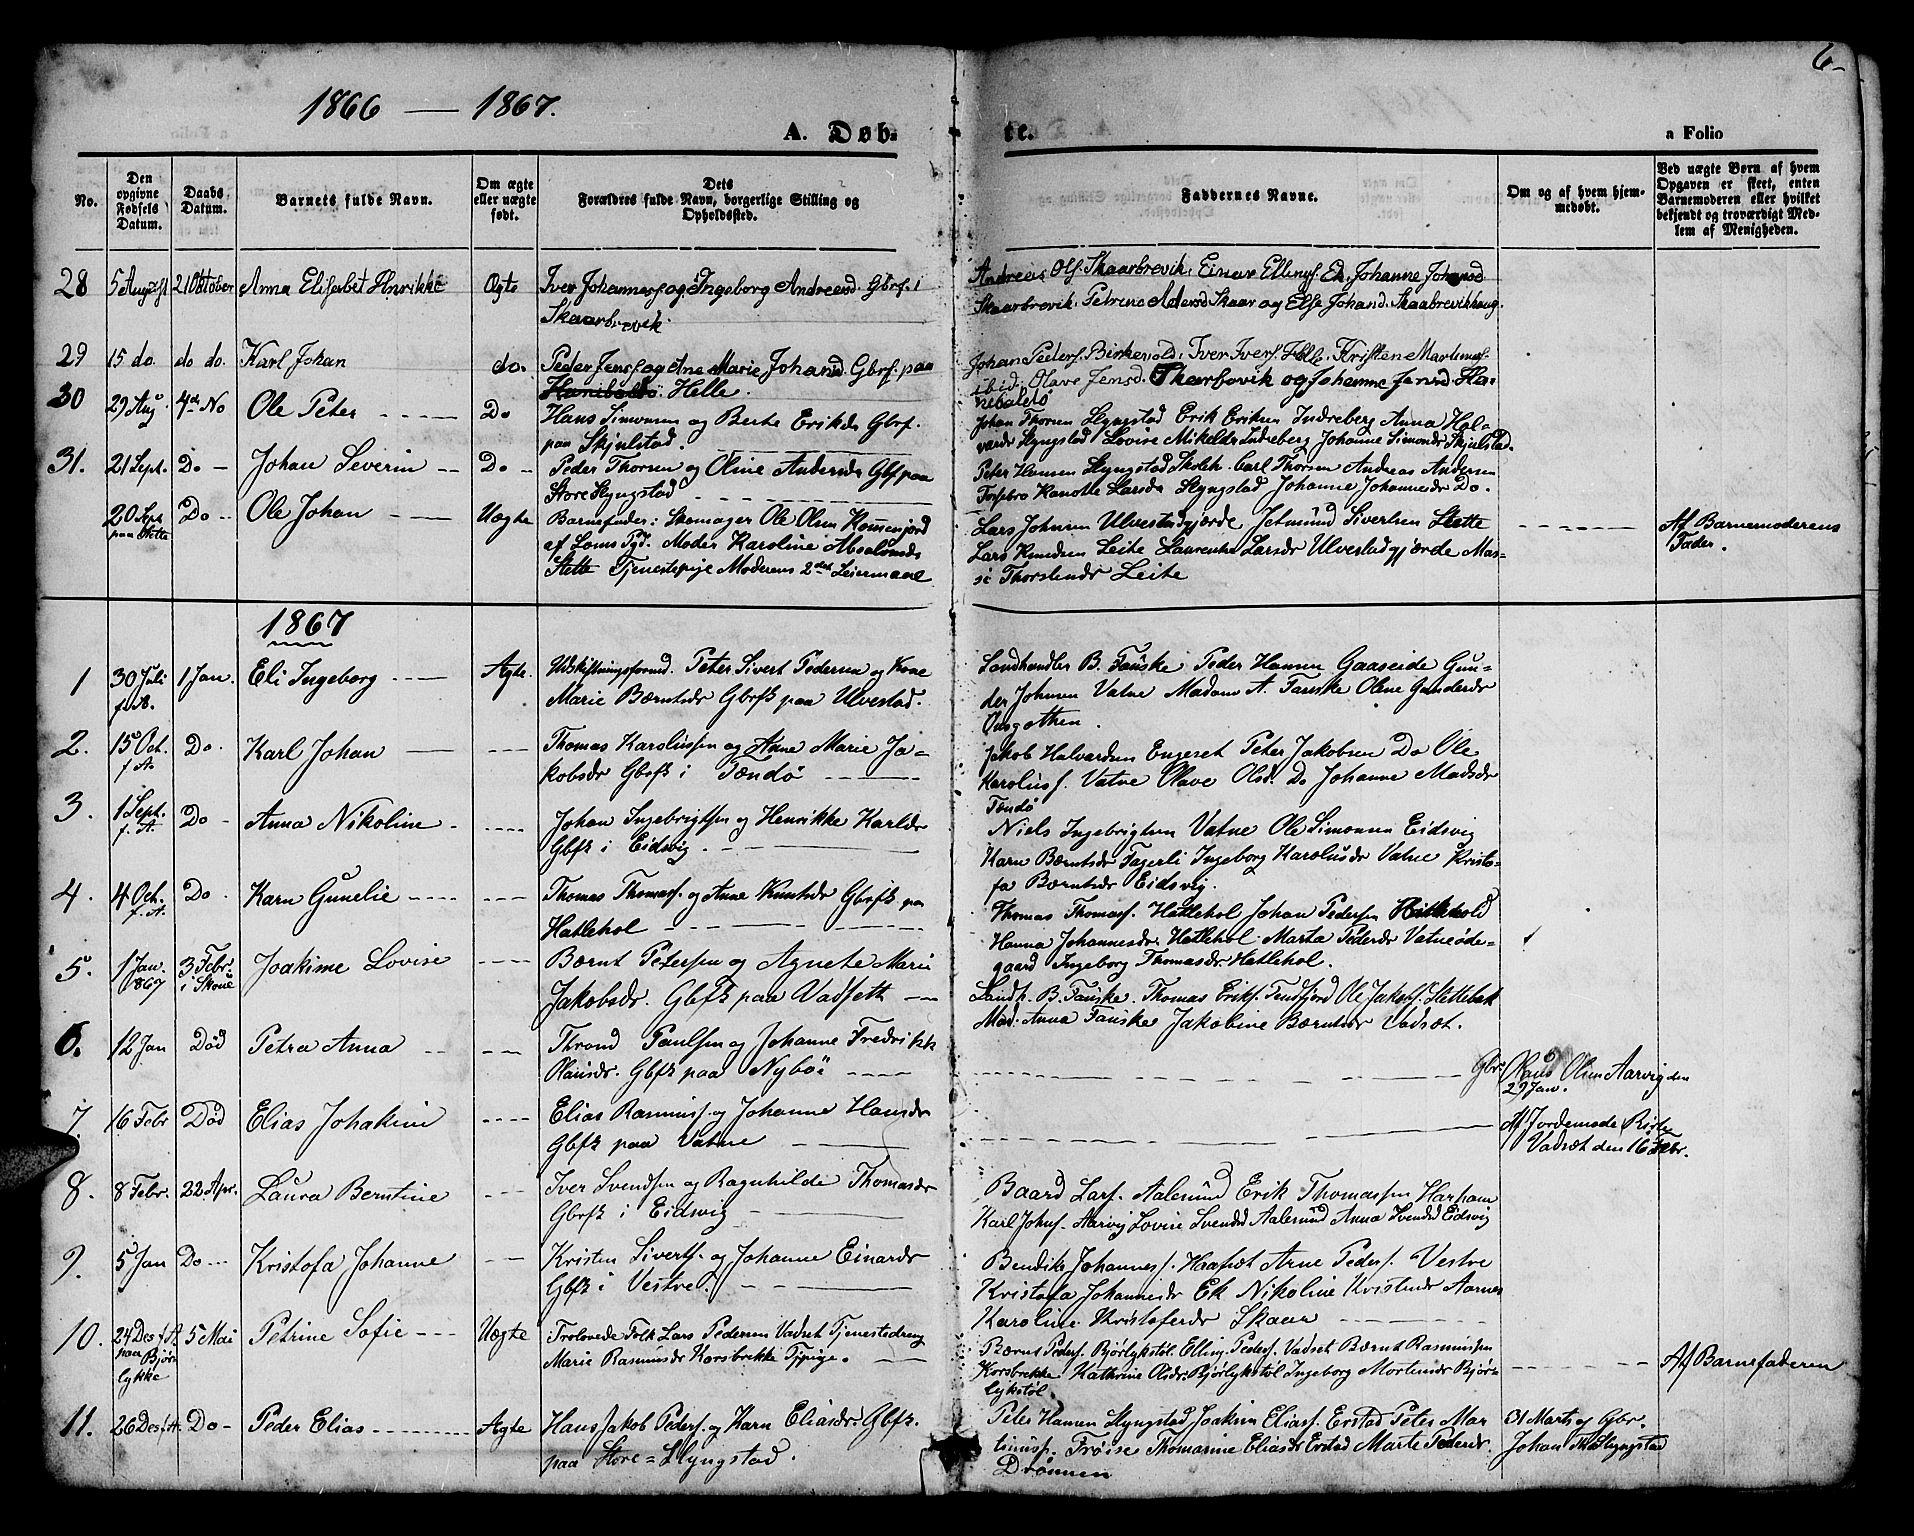 6
1866 — 1867.
A. Døb-
te.
a Folio
No.
Den opgivne Fødsels Datum.
Daabs Datum.
Barnets fulde Navn.
Om ægte eller uægte født.
Dets Forældres fulde Navn, borgerlige Stilling og Opholdssted.
Faddernes Navne.
Om og af hvem hjemmedøbt.
Ved uægte Børn af hvem Opgaven er skeet, enten Barnemoderen eller hvilket bekjendt og troværdigt Medlem af Menigheden.
28 5 August 21 Oktober Anna Elisabet Henrikke Ægte Iver Johannesf og Ingeborg Andreasd. Gbrf. i
Skaarbrevik.
Andreas Olf. Skaarbrevik, Einar Ellingf. Ek, Johanne Johansd
Skaarbrevik, Petrine Skaar og Else Johand. Skaabrevikhaug.
29 15 do. do do. Karl Johan do. Peder Jensf og Ane Marie Johand. Gbrf. paa
Helle.
Johan Pedersf. Birkevold, Iver Iversf. Helle, Kristen Martinusf.
ibid. Olave Jensd. Skarbøvik og Johanne Jensd Ha-
nebalsø
30 29 Aug 4de No Ole Peter Do Hans Simonsen og Berte Eriksdr Gbrf.
paa Skjelstad.
Johan Thorsen Slyngstad Erik Eriksen Indreberg Anna Hal-
vardr Slyngstad Lovise Mikelsdr Indreberg Johanne Simonsdr Skjelstad.
31. 21 Sept. Do Johan Severin Do Peder Thorsen og Oline Andersdr Gbf paa
Store Slyngstad
Peter Hansen Slyngstad Skoleh. Carl Thorsen Andreas Andersen
Kanotte Larsdr Slyngstad Johanne Johannesdr Do.
20 Sept paa Stette Do Ole Johan Uægte Barnefader: Skomager Ole Olsen
af Loms Pgd. Moder Karoline Absalonsdr
Stette Tjenestepige Moderens 2det Leiermaal
Lars Johnsen Ulvestadgjærde Jetmund Sivertsen Stette
Lars Knudsen Leite Laurentse Larsdr Ulvestadgjærde Mar-
si Thorstensdr Leite
Af Barnemoderens
Fader.
1867
1 30 Juli f. A. 1 Jan. Eli Ingeborg Ægte. Udskiftningsformd. Peter Sivert Pedersen og Kone
Marie Bærntsdr Gbrfk paa Ulvestad.
Landhandler B. Fauske Peder Hansen Gaaseide Gun-
der Johnsen Vatne Madame A. Fauske Oline Gundersdr
2. 15 Oct. f A. Do. Karl Johan Thomas Karolussen og Anne Marie Ja-
kobsdr Gbfk i Tændø
Jakob Halvardsen Engeset Peter Jakobsen Do Ole
Karolusf. Vatne Olave Olsd. Do Johanne Madsdr
Tændø
3. 1 Sept. f. A. Do Anna Nikoline Johan Ingebrigtsen og Henrikke Karlsdr
Gbfk i Eidsvig.
Niels Ingebrigtsen Vatne Ole Simonsen Eidsvig
Karn Bærntsdr Fagerli Ingeborg Karolusdr Vatne Kristo-
fa Bærntsdr Eidsvig.
4. 4 Oct. f. A. Do Karn Gunelie Thomas Thomasf. og Anne Knutsdr Gbrfk paa
Hatlehol
Thomas Thomasf. Hatlehol Johan Pedersen
Hanna Johannesdr. Hatlehol Marta Pedersdr Vatneøde-
gaard Ingeborg Thomasdr Hatlehol.
5. 1 Jan. 1867 3 Febr. i Skoue Joakime Lovise Bærnt Petersen og Agnete Marie
Jakobsdr. Gbfk paa Vadsett
Landh. B. Fauske. Thomas Eriksf. Tendfjord Ole Jakobsf. Stettebak
Mad. Anna Fauske Jakobine Bærntsdr Vadsæt.
6. 12 Jan Død Petra Anna Thrond Paulsen og Johanne Fredrikk
Olausdr. Gbfk paa Nybø
Gbr Hans Olsen Aarvig den
29 Jan.
7. 16 Febr Død Elias Johakim Elias Rasmusf. og Johanne Hansdr
Gbfk paa Vatne
Af Jordemode
Vadsæt den 16 Febr.
8. 8 Febr. 22 Apr. Laura Berntine Iver Svendsen og Ragnhilde Thomasdr
Gbrfk i Eidsvig
Baard Larsf. Aalesund Erik Thomassen Harham
Karl Johnsf. Aarvig Lovise Svendsd Aalesund Anna Svendsd Eidsvig
9. 5 Jan Do Kristofa Johanne Kristen Sivertsf. og Johanne Einarsdr
Gbfk i Vestre.
Bendik Johannesf. Haafsæt Arne Pedersf. Vestre
Kristofa Johannesdr Ek Nikoline Kristensdr Aarnes
Karoline Kristofersdr Skaar
10. 24 Des f A paa Bjør- lykke 5 Mai Petrine Sofie Uægte Trolovede Folk Lars Pedersen Vadset Tjenestedreng
Marie Rasmusdr Korsbrekke Tjpige.
Bærnt Pedersf. Bjørlykstøl. Elling Pedersf. Vadset Bærnt Rasmusen
Korsbrekke Kathrine Olsdr. Bjørlykstøl Ingeborg Mortensdr Bjør-
lykstøl.
Af Barnefaderen
11. 26 Des f. A Do Peder Elias Ægte Hans Jakob Pedersf. og Karn Eliasdr Gbfk.
paa Store-Slyngstad.
Peter Hansen Slyngstad Joakim Eliasf. Erstad Peter Mar-
tinusf. Frøise Thomasine Eliasdr Erstad Marte Pedersdr.
Drønnen
31 Marts af Gbr.
Johan Slyngstad